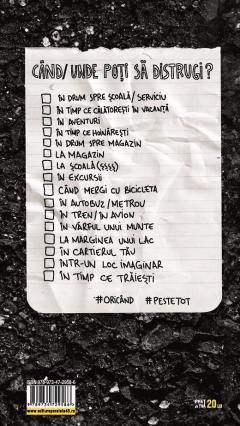 CÂND/UNDE POȚI SĂ DISTRUGI?
ÎN DRUM SPRE ȘCOALĂ/SERVICIU
ÎN TIMP CE CĂLĂTOREȘTI ÎN VACANȚĂ
ÎN AVENTURI
ÎN TIMP CE HOINĂREȘTI
ÎN DRUM SPRE MAGAZIN
LA MAGAZIN
LA ȘCOALĂ (ȘȘȘȘ)
ÎN EXCURSII
CÂND MERGI CU BICICLETA
ÎN AUTOBUZ/METROU
ÎN TREN/ÎN AVION
ÎN VÂRFUL UNUI MUNTE
LA MARGINEA UNUI LAC
ÎN CARTIERUL TĂU
ÎNTR-UN LOC IMAGINAR
ÎN TIMP CE TRĂIEȘTI
#ORICÂND #PESTETOT
20